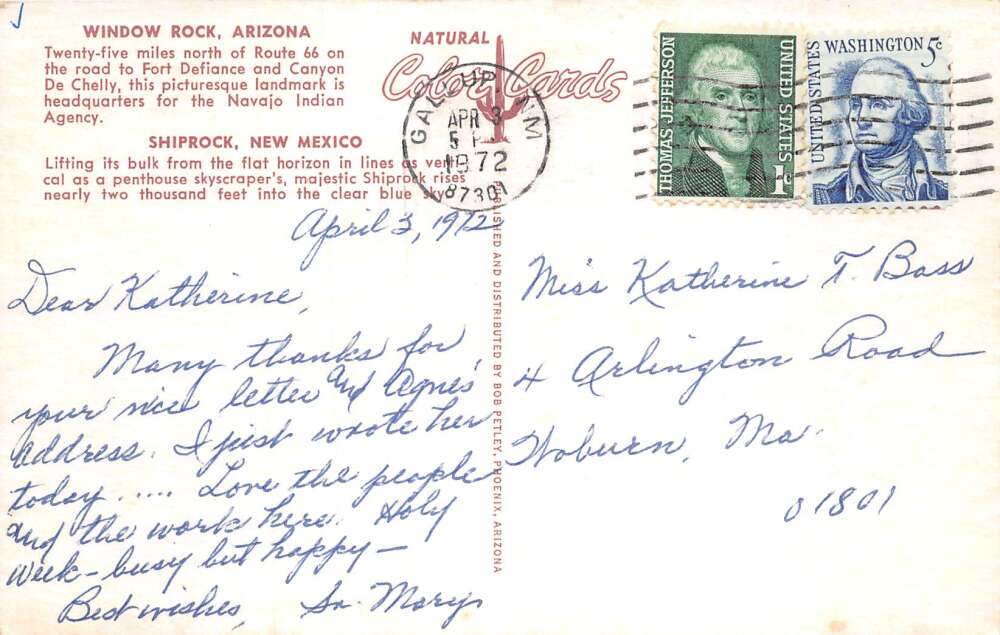 WINDOW ROCK, ARIZONA
Twenty-five miles north of Route 66 on
the road to Fort Defiance and Canyon
De Chelly, this picturesque landmark is
headquarters for the Navajo Indian
Agency.
SHIPROCK, NEW MEXICO
Lifting its bulk from the flat horizon in lines as verti
cal as a penthouse skyscraper's, majestic Shiprock rises
nearly two thousand feet into the clear blue sky.
NATURAL
Color Cards
GALLUP, NM
APR 3
5 P
1972
87301
THOMAS JEFFERSON
UNITED STATES
1c
UNITED STATES
WASHINGTON 5c
PUBLISHED AND DISTRIBUTED BY BOB PETLEY, PHOENIX, ARIZONA
April 3, 1972
Dear Katherine,
Many thanks for
your nice letter and Agnes'
address. I just wrote her
today ..... Love the people
and the work here. Holy
Week - busy but happy -
Best wishes, Sr. Mary
Miss Katherine T. Bass
4 Arlington Road
Woburn, Ma.
01801